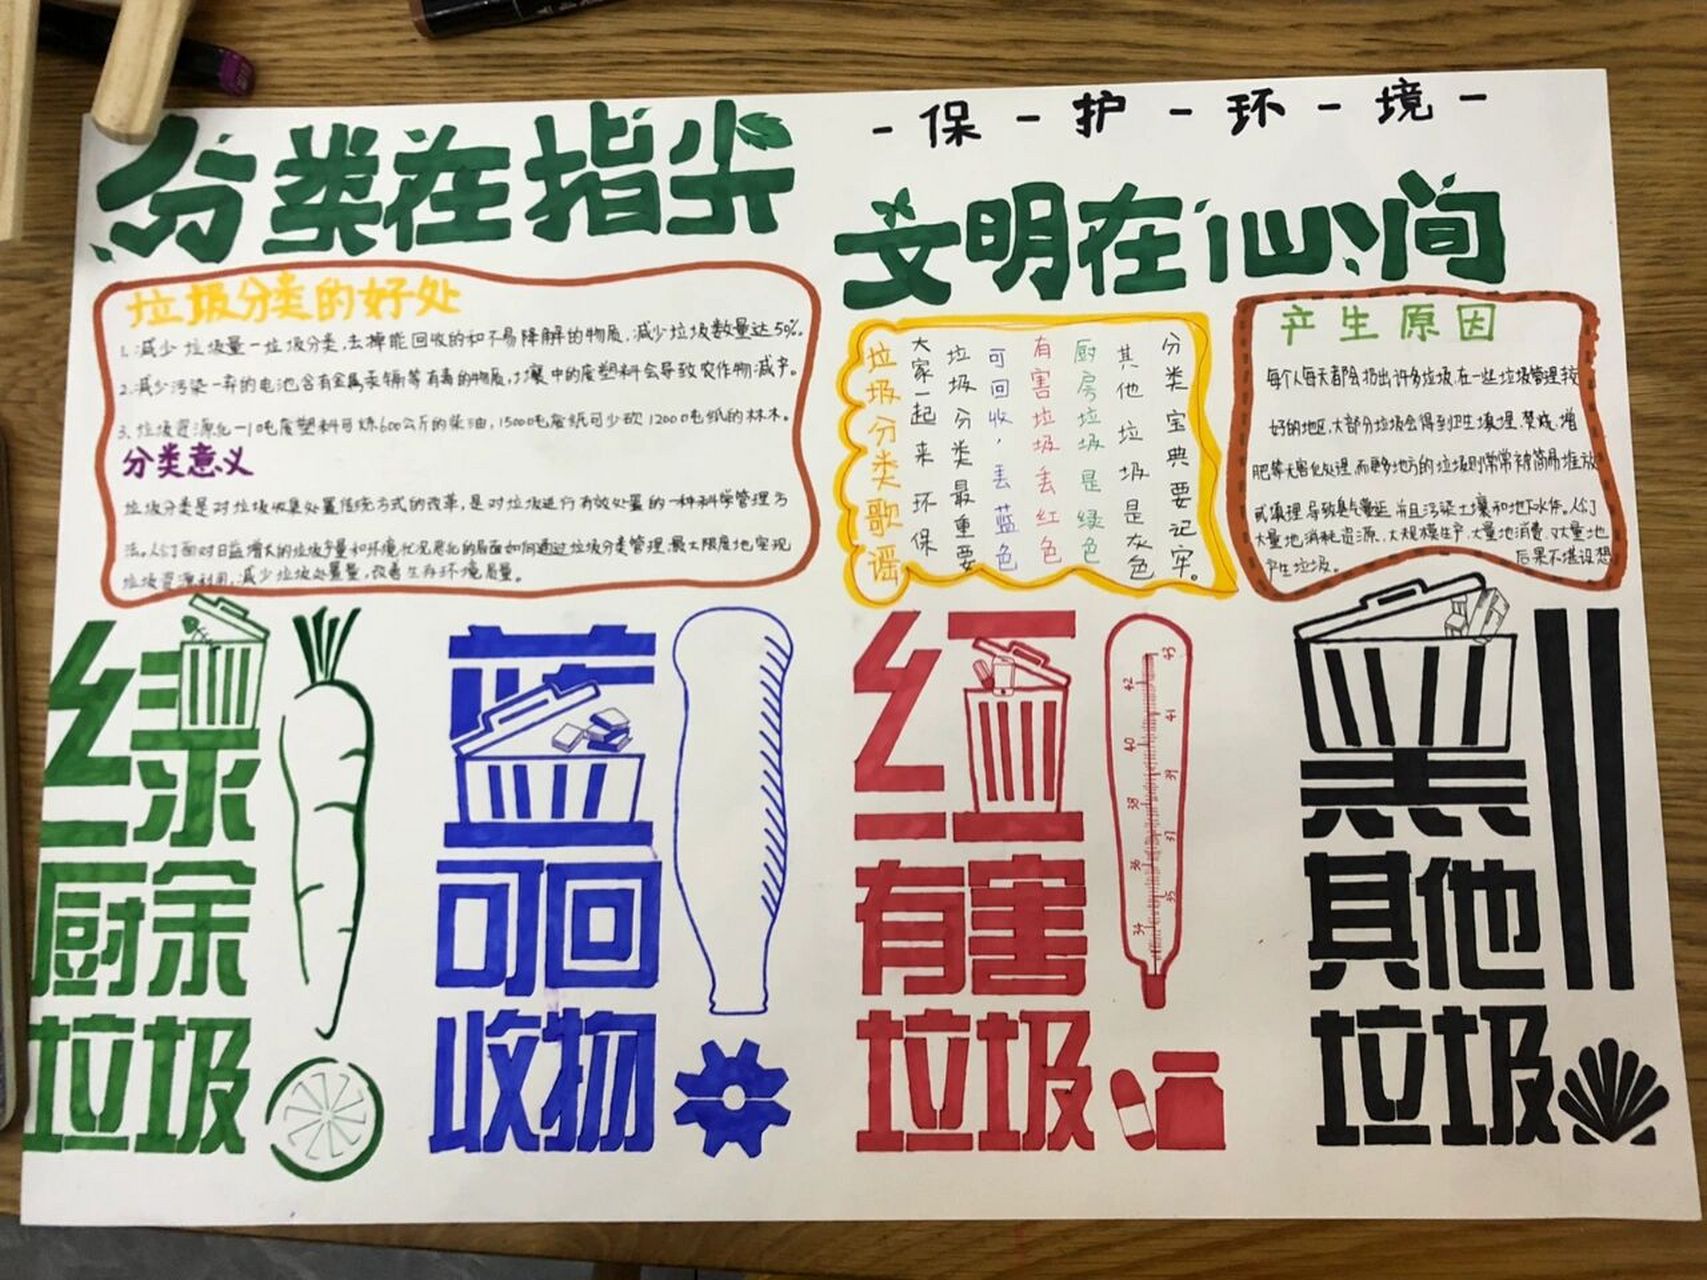 分类在指尖
-保-护-环-境-
文明在心间
垃圾分类的好处
1.减少垃圾量一垃圾分类,去掉能回收的和不易降解的物质,减少垃圾数量达50%.
2.减少污染一弃的电池含有金属汞镉等有毒的物质,土壤中的废塑料会导致农作物减产。
3.垃圾资源化一1吨废塑料可炼600公斤的柴油,1500吨废纸可少砍1200吨纸的林木。
分类意义
垃圾分类是对垃圾收集处置传统方式的改革,是对垃圾进行有效处置的一种科学管理方
法。人们面对日益增大的垃圾产量和环境状况恶化的局面如何通过垃圾分类管理,最大限度地实现
垃圾资源利用,减少垃圾处置量,改善生存环境质量。
垃圾分类歌谣
大家一起来环保
垃圾分类最重要
可回收,丢蓝色
有害垃圾丢红色
厨房垃圾是绿色
其他垃圾是灰色
分类宝典要记牢。
产生原因
每个人每天都会扔出许多垃圾,在一些垃圾管理较
好的地区,大部分垃圾会得到卫生填埋,焚烧,增
肥等无害化处理,而更多地方的垃圾则常常被简易堆放
或填埋,导致臭气蔓延,并且污染土壤和地下水体。人们
大量地消耗资源,大规模生产,大量地消费,又大量地
产生垃圾。后果不堪设想
绿
厨余
垃圾
蓝
可回
收物
红
有害
垃圾
43
42
41
40
39
38
37
36
35
34
黑
其他
垃圾